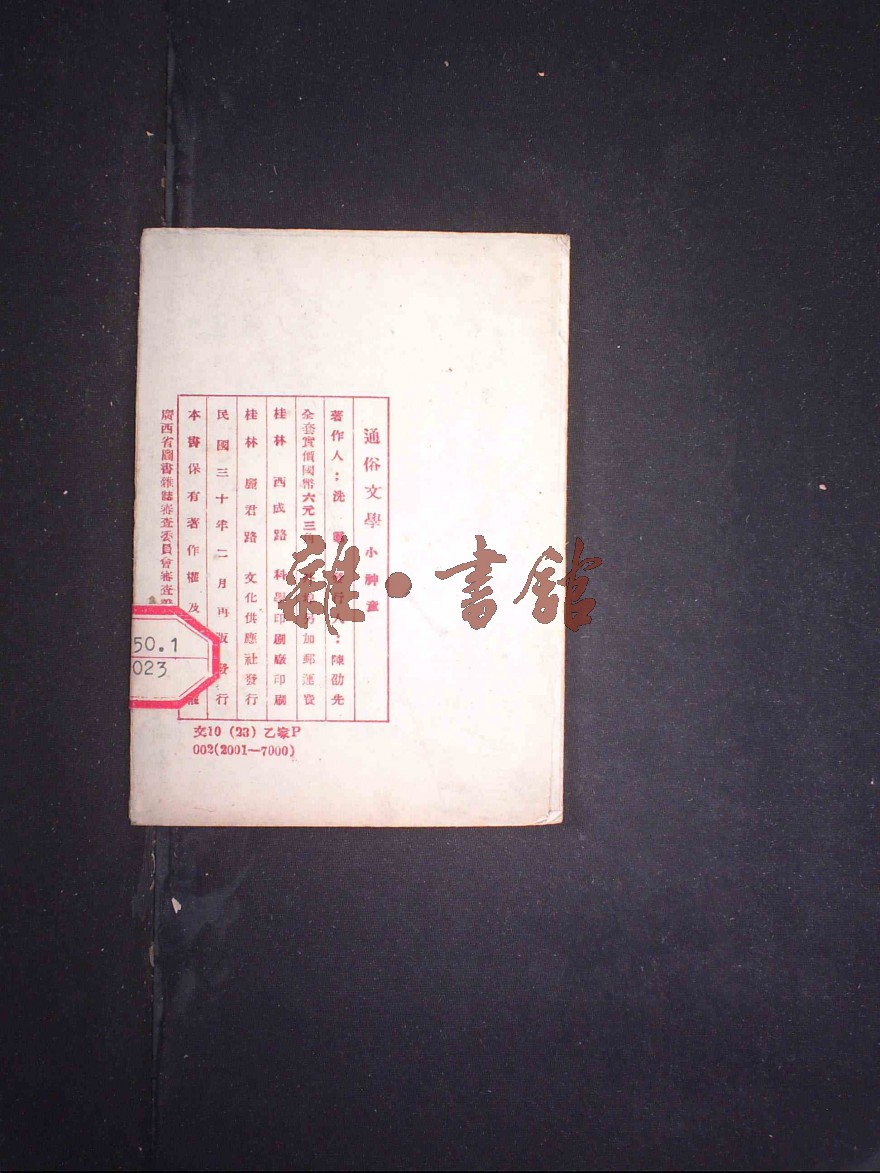 通俗文學 小神童
著作人：洗 行人：陳劭先
全套實價國幣六元三 加郵運費
桂林 西成路 科學印刷廠印刷
桂林 麗君路 文化供應社發行
民國三十年二月再版發行
本書保有著作權及 權
廣西省圖書雜誌審查委員會審查
50.1
023
文10 (23) 乙家P
002(2001—7000)
雜·書館